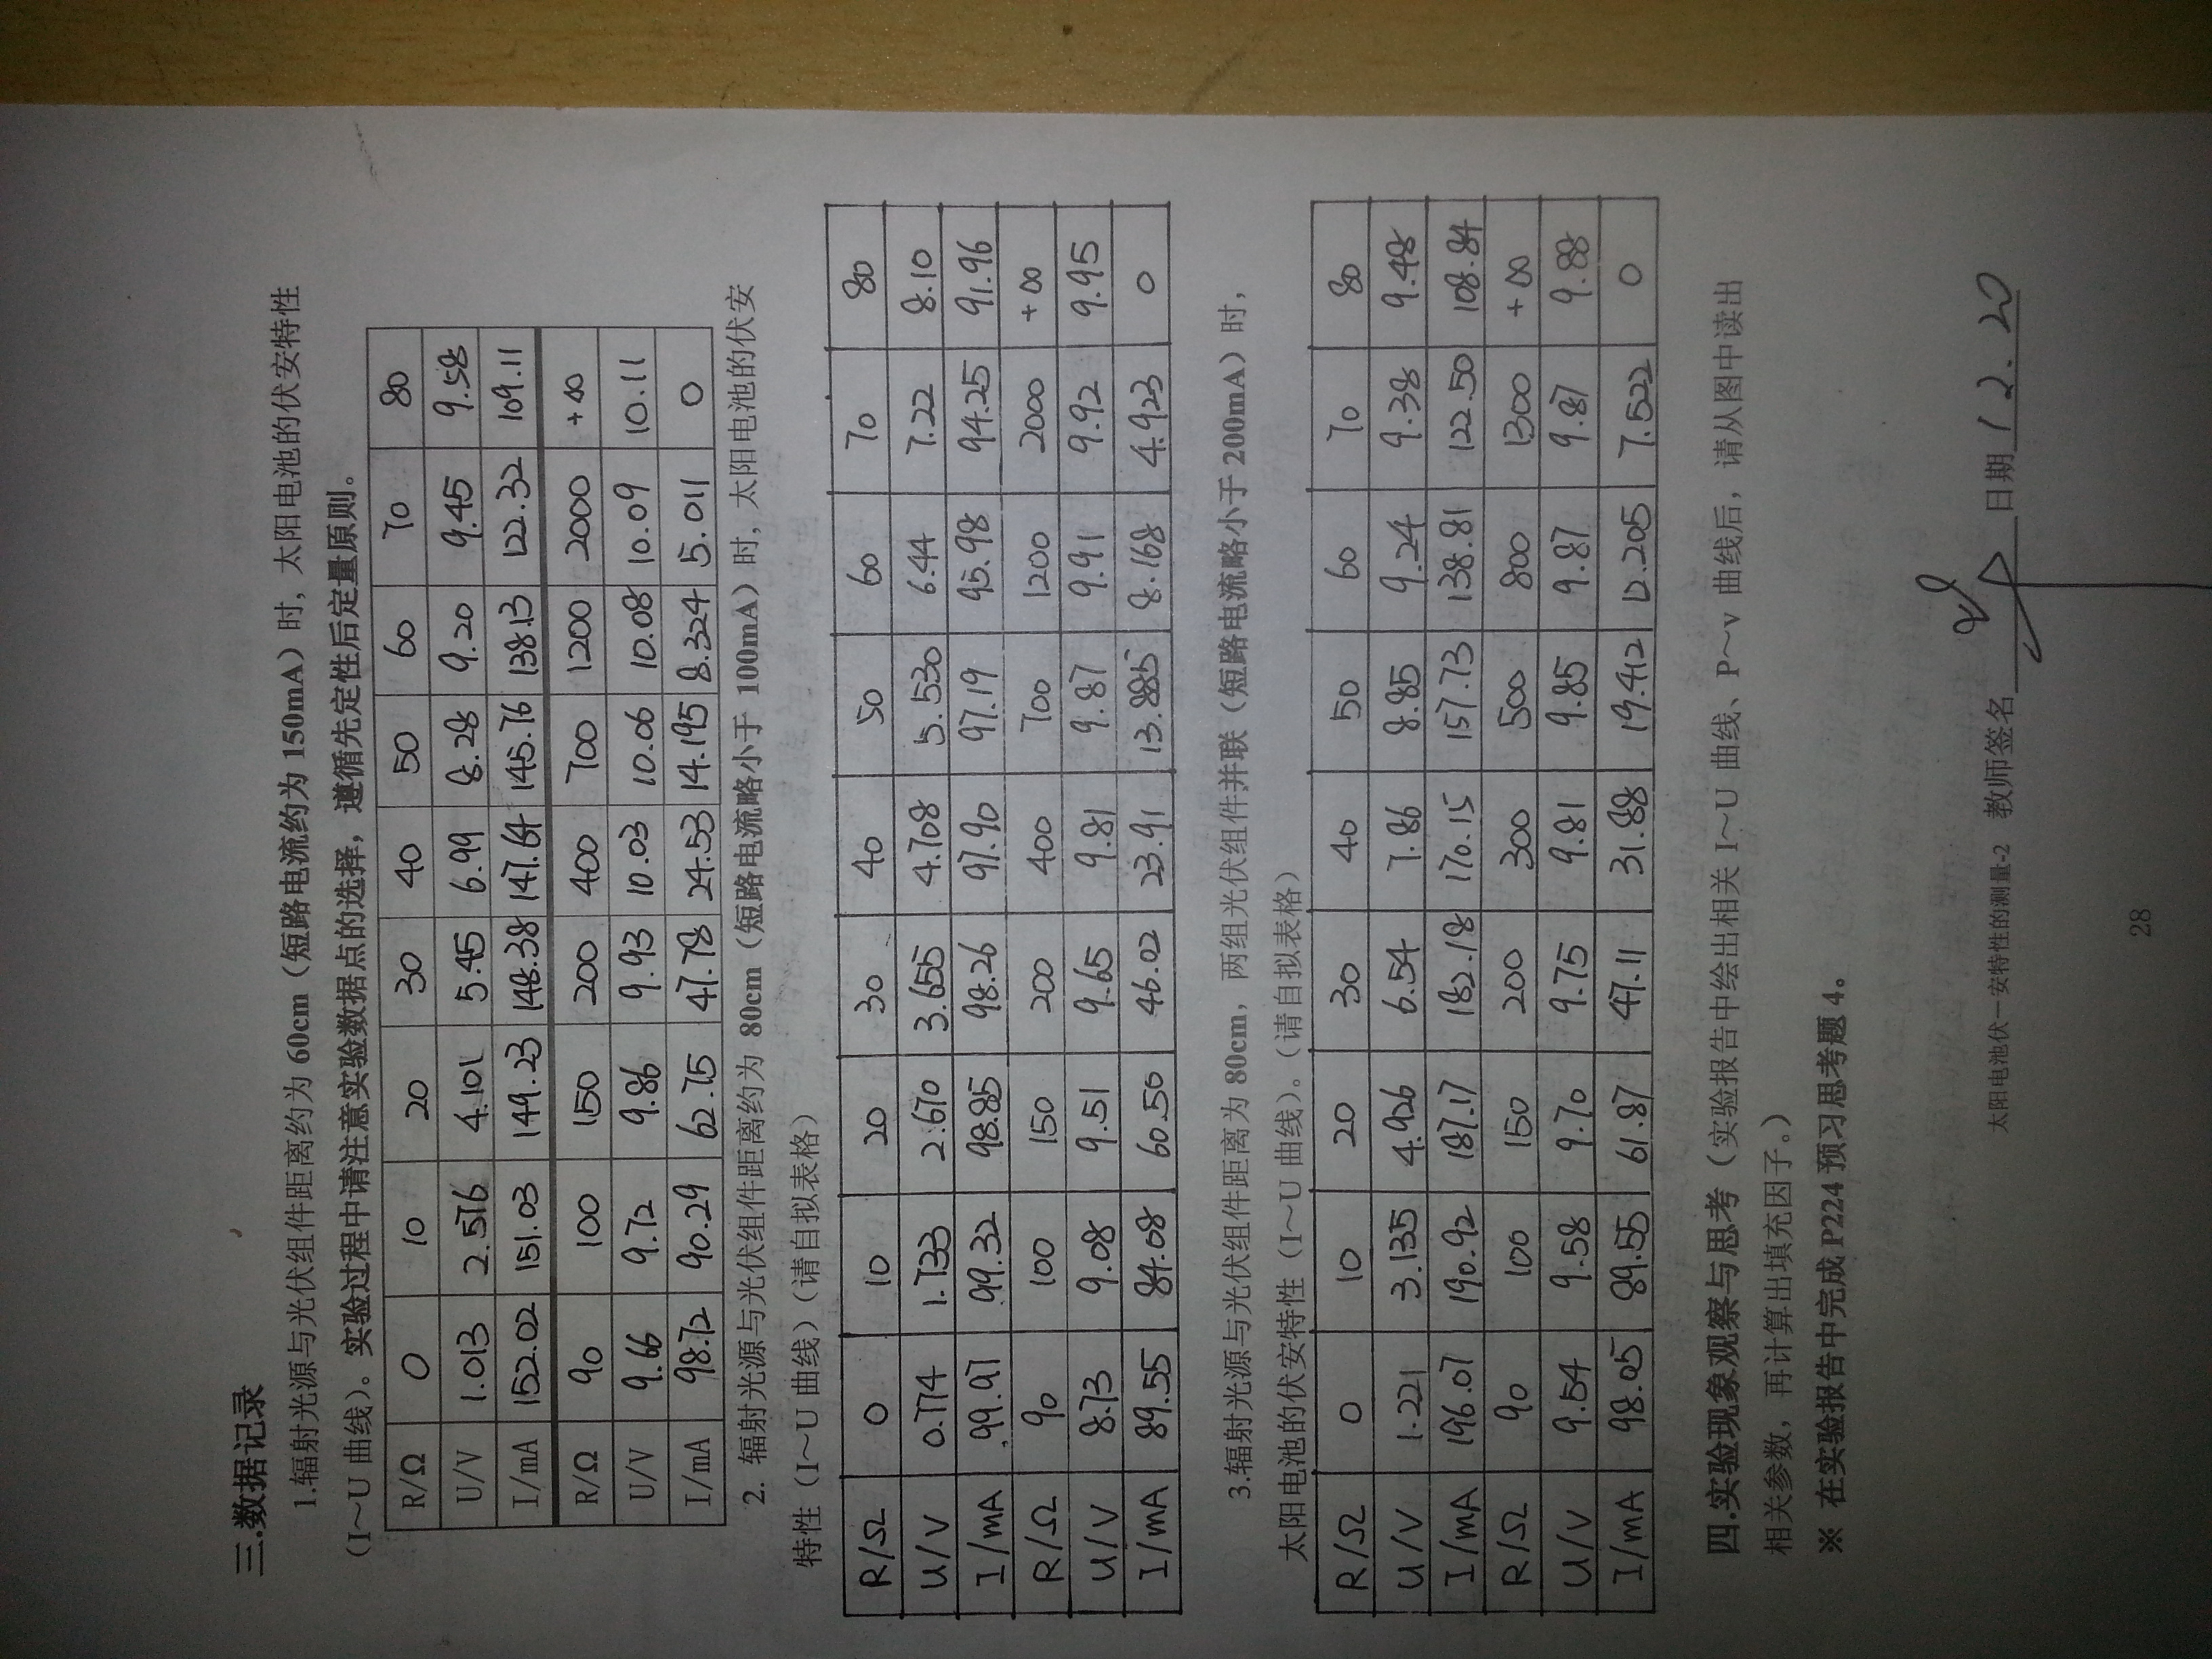 三.数据记录
1.辐射光源与光伏组件距离约为 60cm（短路电流约为 150mA）时, 太阳电池的伏安特性
（I～U 曲线）。实验过程中请注意实验数据点的选择，遵循先定性后定量原则。
R/Ω 0 10 20 30 40 50 60 70 80
U/V 1.013 2.576 4.101 5.45 6.99 8.28 9.20 9.45 9.58
I/mA 152.02 151.03 149.23 148.38 147.64 145.76 138.13 122.32 109.11
R/Ω 90 100 150 200 400 700 1200 2000 +∞
U/V 9.66 9.72 9.86 9.93 10.03 10.06 10.08 10.09 10.11
I/mA 98.72 90.29 62.75 47.78 24.53 14.195 8.324 5.011 0
2. 辐射光源与光伏组件距离约为 80cm（短路电流略小于 100mA）时, 太阳电池的伏安
特性（I～U 曲线）（请自拟表格）
R/Ω 0 10 20 30 40 50 60 70 80
U/V 0.774 1.733 2.670 3.655 4.708 5.530 6.44 7.22 8.10
I/mA 99.97 99.32 98.85 98.26 97.90 97.19 95.98 94.25 91.96
R/Ω 90 100 150 200 400 700 1200 2000 +∞
U/V 8.73 9.08 9.51 9.65 9.81 9.87 9.91 9.92 9.95
I/mA 89.55 84.08 60.50 46.02 23.91 13.885 8.168 4.923 0
3.辐射光源与光伏组件距离为 80cm，两组光伏组件并联（短路电流略小于 200mA）时，
太阳电池的伏安特性（I～U 曲线）。（请自拟表格）
R/Ω 0 10 20 30 40 50 60 70 80
U/V 1.221 3.135 4.926 6.54 7.86 8.85 9.24 9.38 9.48
I/mA 196.07 190.92 187.17 182.18 170.15 157.73 138.81 122.50 108.84
R/Ω 90 100 150 200 300 500 800 1300 +∞
U/V 9.54 9.58 9.70 9.75 9.81 9.85 9.87 9.87 9.88
I/mA 98.05 89.55 61.87 47.11 31.88 19.412 12.205 7.522 0
四.实验现象观察与思考（实验报告中绘出相关 I～U 曲线、P～v 曲线后，请从图中读出
相关参数，再计算出填充因子。）
※ 在实验报告中完成 P224 预习思考题 4。
太阳电池伏－安特性的测量-2 教师签名 日期 12.20
28